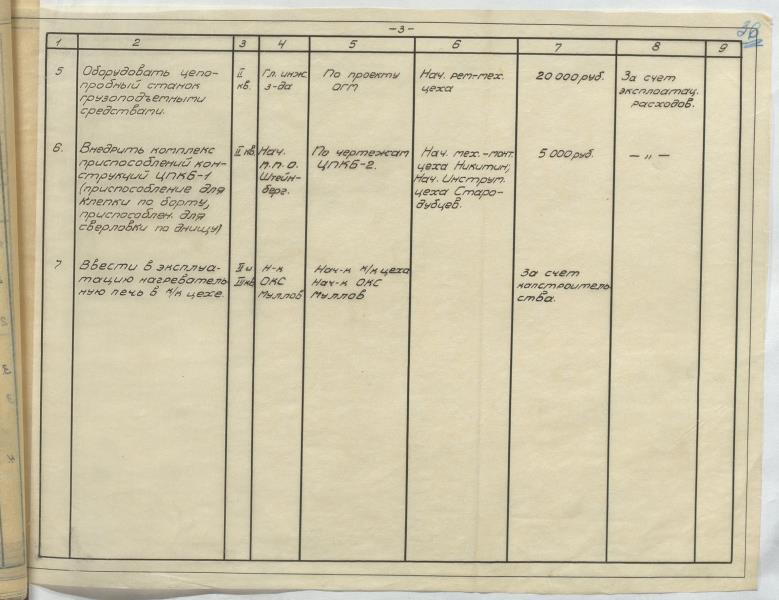 -3-
36
1 2 3 4 5 6 7 8 9
5 Оборудовать цепо-
пробный станок
грузоподъемными
средствами.
II
кв.
Гл. инж.
з-да
По проекту
ОГМ
Нач. рем-мех.
цеха
20 000 руб.
За счет
эксплоатац.
расходов.
6. Внедрить комплекс
приспособлений кон-
струкций ЦПКБ-1
(приспособление для
клепки по борту,
приспособлен. для
сверловки по днищу)
II кв.
Нач.
п.п.о.
Штейн-
берг.
По чертежам
ЦПКБ-2.
Нач. мех.-монт.
цеха Никитин;
Нач. Инструм.
цеха Старо-
дубцев.
5 000 руб.
— „ —
7 Ввести в эксплуа-
тацию нагреватель
ную печь в к/к цехе.
II и
III кв.
Н-к
ОКС
Муллов
Нач-к к/к цеха
Нач-к ОКС
Муллов
За счет
капстроитель-
ства.